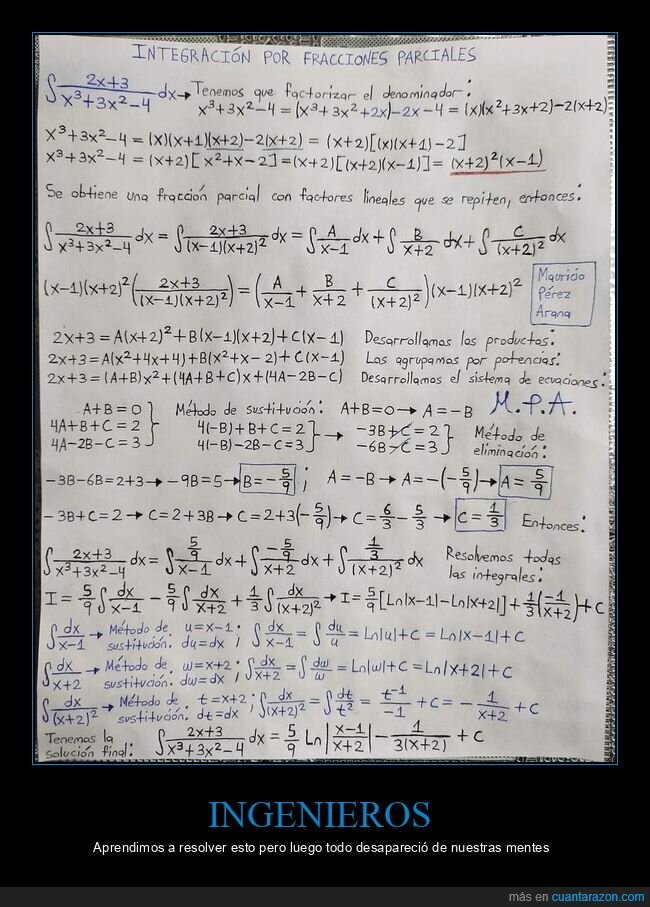 INTEGRACIÓN POR FRACCIONES PARCIALES
∫ (2x+3)/(x³+3x²-4) dx → Tenemos que factorizar el denominador:
x³+3x²-4 = (x³+3x²+2x)-2x-4 = (x)(x²+3x+2)-2(x+2)
x³+3x²-4 = (x)(x+1)(x+2)-2(x+2) = (x+2)[(x)(x+1)-2]
x³+3x²-4 = (x+2)[x²+x-2] = (x+2)[(x+2)(x-1)] = (x+2)²(x-1)
Se obtiene una fracción parcial con factores lineales que se repiten, entonces:
∫ (2x+3)/(x³+3x²-4) dx = ∫ (2x+3)/((x-1)(x+2)²) dx = ∫ A/(x-1) dx + ∫ B/(x+2) dx + ∫ C/(x+2)² dx
(x-1)(x+2)² ((2x+3)/((x-1)(x+2)²)) = (A/(x-1) + B/(x+2) + C/(x+2)²)(x-1)(x+2)²
Mauricio
Pérez
Arana
2x+3 = A(x+2)²+B(x-1)(x+2)+C(x-1) Desarrollamos los productos:
2x+3 = A(x²+4x+4)+B(x²+x-2)+C(x-1) Los agrupamos por potencias:
2x+3 = (A+B)x²+(4A+B+C)x+(4A-2B-C) Desarrollamos el sistema de ecuaciones:
M.P.A.
A+B=0
4A+B+C=2
4A-2B-C=3
Método de sustitución: A+B=0 → A=-B
4(-B)+B+C=2
4(-B)-2B-C=3
→ -3B+C=2
-6B-C=3
Método de
eliminación:
-3B-6B=2+3 → -9B=5 → B=-5/9 ; A=-B → A=-(-5/9) → A=5/9
-3B+C=2 → C=2+3B → C=2+3(-5/9) → C=6/3-5/3 → C=1/3 Entonces:
∫ (2x+3)/(x³+3x²-4) dx = ∫ (5/9)/(x-1) dx + ∫ (-5/9)/(x+2) dx + ∫ (1/3)/(x+2)² dx Resolvemos todas
las integrales:
I = 5/9 ∫ dx/(x-1) - 5/9 ∫ dx/(x+2) + 1/3 ∫ dx/(x+2)² → I = 5/9 [Ln|x-1|-Ln|x+2|] + 1/3 (-1/(x+2)) + C
∫ dx/(x-1) → Método de sustitución. u=x-1 du=dx ; ∫ dx/(x-1) = ∫ du/u = Ln|u|+C = Ln|x-1|+C
∫ dx/(x+2) → Método de sustitución. w=x+2 dw=dx ; ∫ dx/(x+2) = ∫ dw/w = Ln|w|+C = Ln|x+2|+C
∫ dx/(x+2)² → Método de sustitución. t=x+2 dt=dx ; ∫ dx/(x+2)² = ∫ dt/t² = t⁻¹/-1 + C = -1/(x+2) + C
Tenemos la
solución final: ∫ (2x+3)/(x³+3x²-4) dx = 5/9 Ln|(x-1)/(x+2)| - 1/(3(x+2)) + C
INGENIEROS
Aprendimos a resolver esto pero luego todo desapareció de nuestras mentes
más en cuantarazon.com